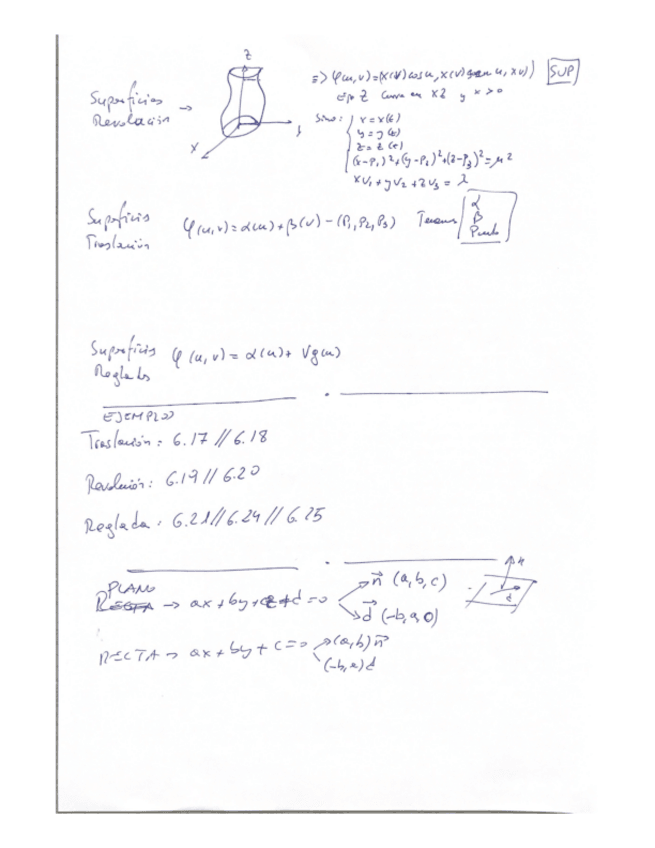 z
=> φ(u,v)=(x(v)cosu, x(v)senu, z(v)) SUP
Superficies Revolución →
Eje Z Curva en XZ y x>0
x
Sino: { x = x(t)
y = y(t)
z = z(t)
(x-P₁)²+(y-P₂)²+(z-P₃)²=μ²
xv₁+yv₂+zv₃ = λ
Superficies Traslación φ(u,v)=α(u)+β(v)-(P₁,P₂,P₃) Tenemos
α
β
Punto
Superficies Regladas φ(u,v) = α(u) + v g(u)
EJEMPLOS
Traslación: 6.17 // 6.18
Revolución: 6.19 // 6.20
Reglada: 6.21 // 6.24 // 6.25
PLANO
RECTA → ax+by+cz+d=0
n⃗ (a,b,c)
d⃗ (-b,a,0)
n
d
RECTA → ax+by+c=0 → (a,b) n⃗
(-b,a) d